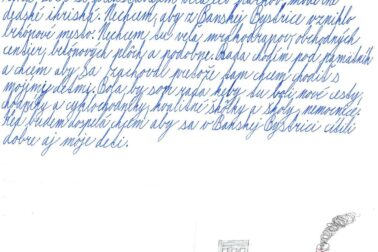 detské ihriská. Nechcem, aby z Banskej Bystrice vzniklo
betónové mesto. Nechcem tu veľa mrakodrapov, obchodných
centier, betónových plôch a podobne. Rada chodím pod pamätník
a chcem aby sa zachoval pretože tam chcem chodiť s
mojimi deťmi. Bola by som rada keby tu boli nové cesty,
chodníky a cyklochodníky, kvalitné škôlky a školy, nemocnice.
Keď budem dospelá chcem aby sa v Banskej Bystrici cítili
dobre aj moje deti.